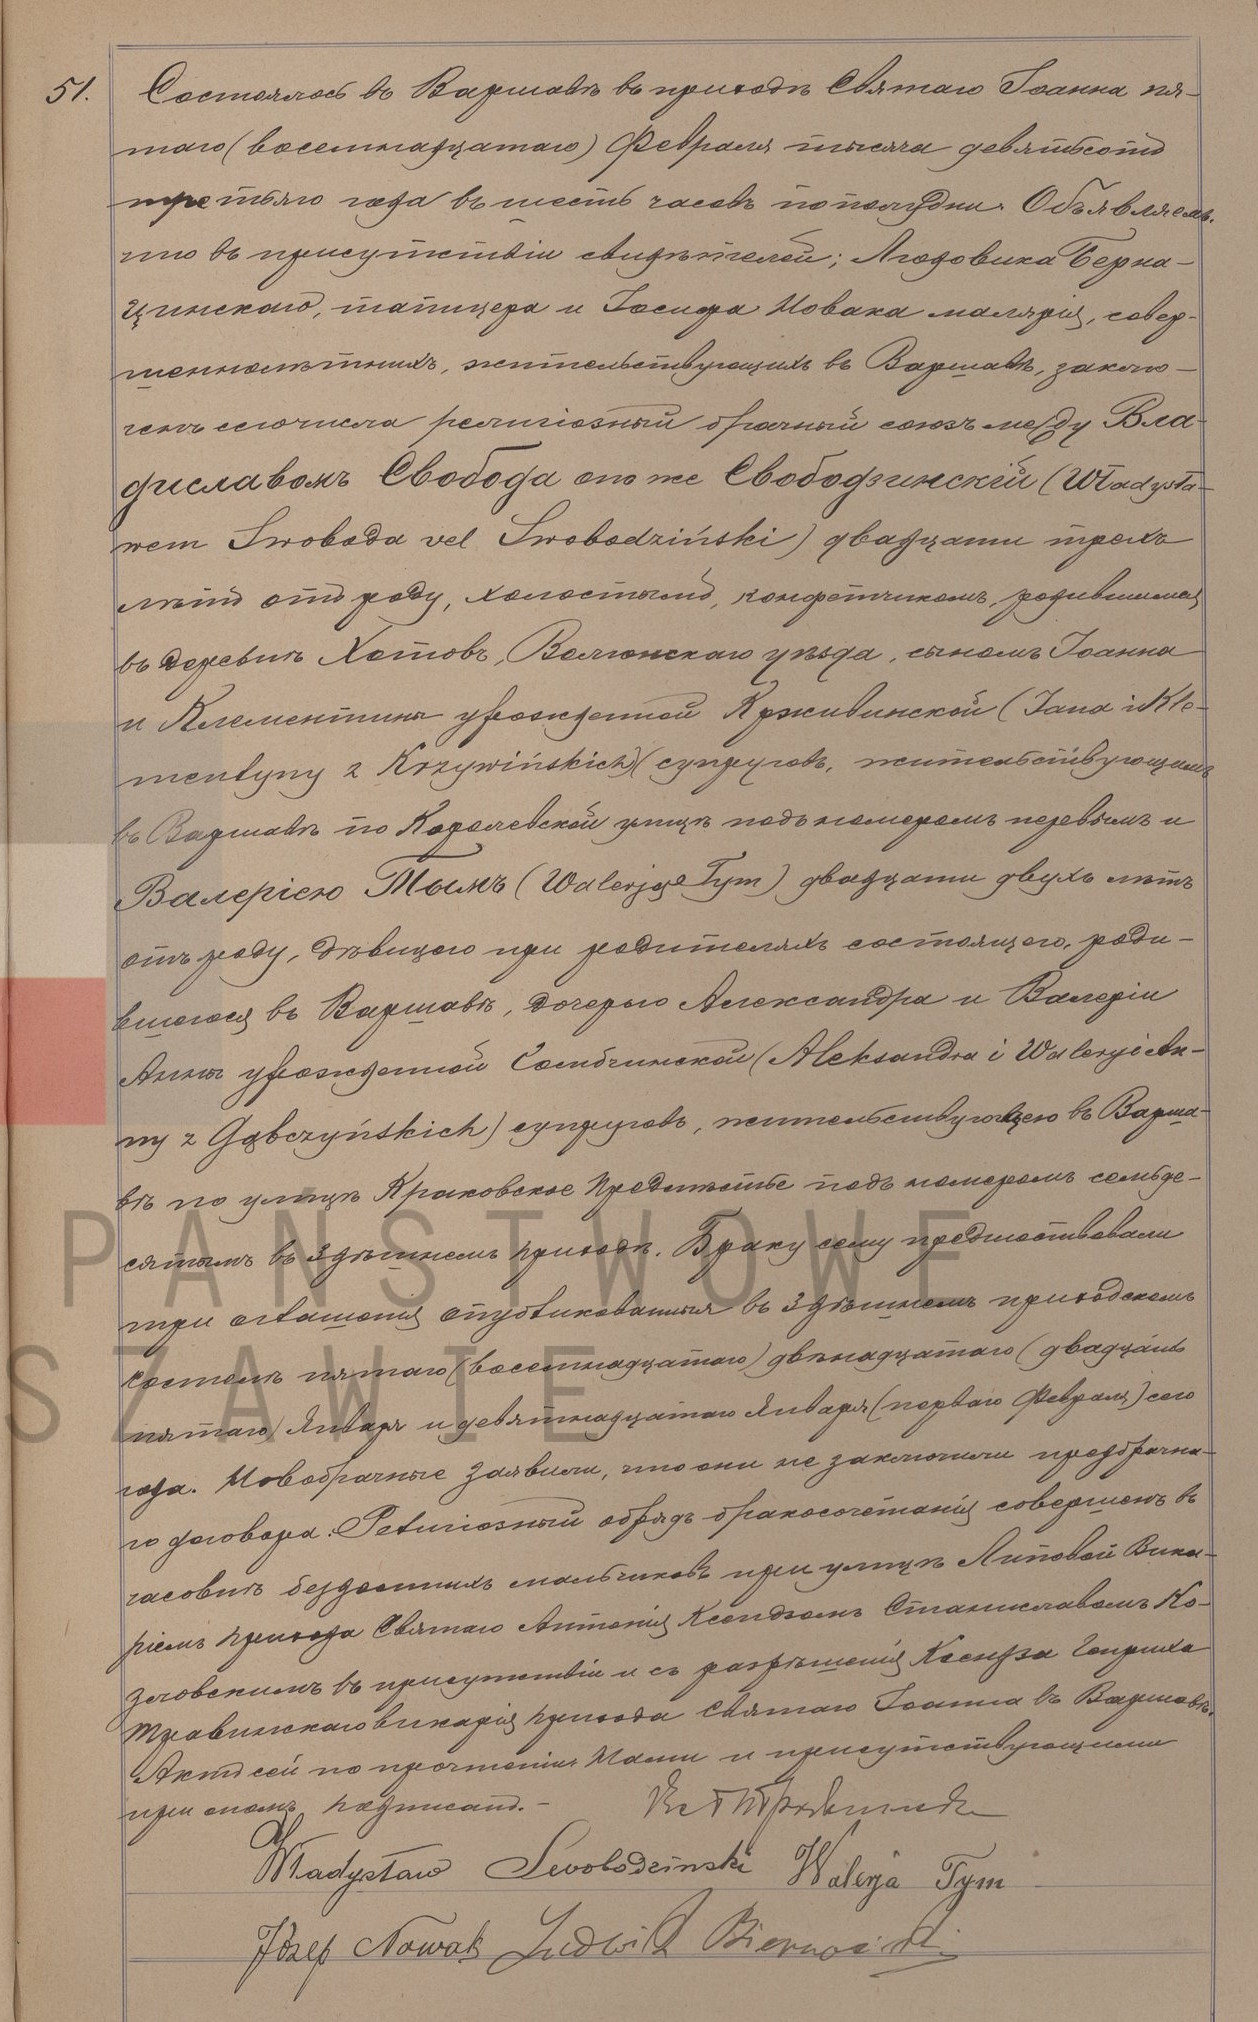 51. Состоялось въ Варшавѣ въ приходѣ Святаго Іоанна пя-
таго (восемнадцатаго) Февраля тысяча девятьсотъ
третьяго года въ шесть часовъ пополудни. Объявляемъ,
что въ присутствіи свидѣтелей; Людовика Берна-
цинскаго, тапицера и Іосифа Новака маляря, совер-
шеннолѣтнихъ, жительствующихъ въ Варшавѣ, заклю-
ченъ сегочисла религіозный брачный союзъ между Вла-
диславомъ Свобода онъ же Свободзинскій (Władysła-
wem Swoboda vel Swobodziński) двадцати трехъ
лѣтъ отъ роду, холостымъ, конфетчикомъ, родившимся
въ деревнѣ Хотовъ, Велюнскаго уѣзда, сыномъ Іоанна
и Клементины урожденной Крживинской (Jana i Kle-
mentyny z Krzywińskich) супруговъ, жительствующимъ
въ Варшавѣ по Королевской улицѣ подъ номеромъ первымъ и
Валеріею Тымъ (Walerją Tym) двадцати двухъ лѣтъ
отъ роду, дѣвицею при родителяхъ состоящею, роди-
вшеюся въ Варшавѣ, дочерью Александра и Валеріи
Анны урожденной Гомбчинской (Aleksandra i Waleryi An-
ny z Gąbczyńskich) супруговъ, жительствующею въ Варша-
вѣ по улицѣ Краковское Предмѣстье подъ номеромъ семьде-
сятымъ въ здѣшнемъ приходѣ. Браку сему предшествовали
три оглашенія опубликованныя въ здѣшнемъ приходскомъ
костелѣ пятаго (восемнадцатаго) двѣнадцатаго (двадцать
пятаго) Января и девятнадцатаго Января (перваго Февраля) сего
года. Новобрачные заявили, что они не заключили предбрачна-
го договора. Религіозный обрядъ бракосочетанія совершенъ въ
часовнѣ бездомныхъ мальчиковъ при улицѣ Липовой Вика-
ріемъ прихода Святаго Антонія Ксендзомъ Станиславомъ Ко-
зловскимъ въ присутствіи и съ разрѣшенія Ксендза Генриха
Травинскаго викарія прихода Святаго Іоанна въ Варшавѣ.
Актъ сей по прочтеніи Нами и присутствующими
при ономъ подписанъ. –
Władysław Swobodzinski Walerja Tym
Józef Nowak Ludwik
PAŃSTWOWE
SZAWIE